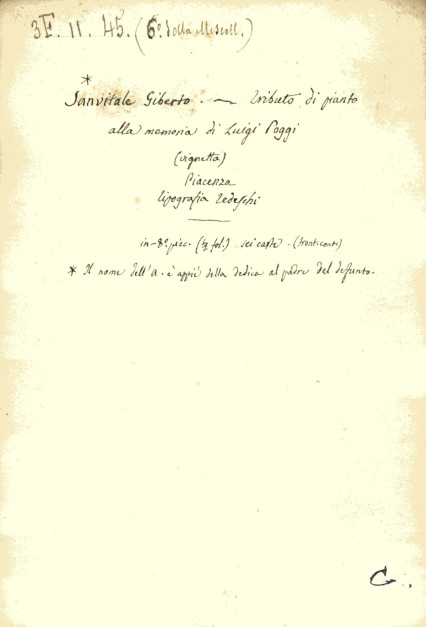 3F. II. 45. (6º. della Miscell.)
*
Sanvitale Giberto. — Tributo di pianto
alla memoria di Luigi Poggi
(vignetta)
Piacenza
Tipografia Tedeschi
in-8º. picc. (½ fol.) - sei carte - (front. cont.)
* Il nome dell'A. è appiè della dedica al padre del defunto.
G.